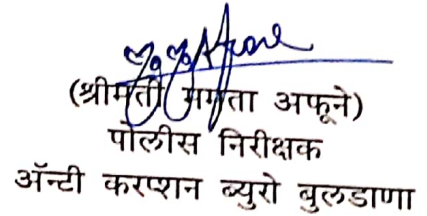 (श्रीमती ममता अफूने)
पोलीस निरीक्षक
ॲन्टी करप्शन ब्युरो बुलडाणा